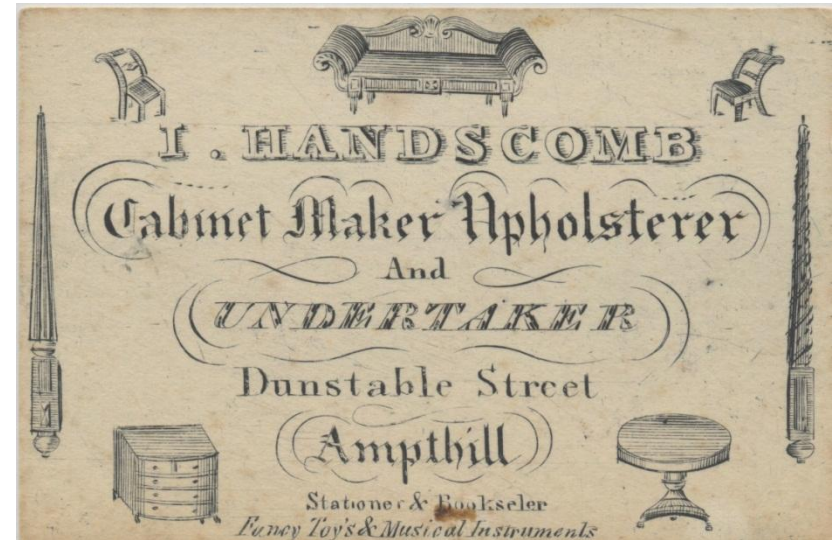 I. HANDSCOMB
Cabinet Maker Upholsterer
And
UNDERTAKER
Dunstable Street
Ampthill
Stationer & Bookseler
Fancy Toy's & Musical Instruments